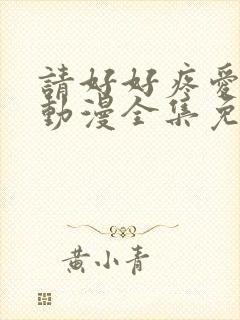 請好好疼愛
動漫全集免
黃小青